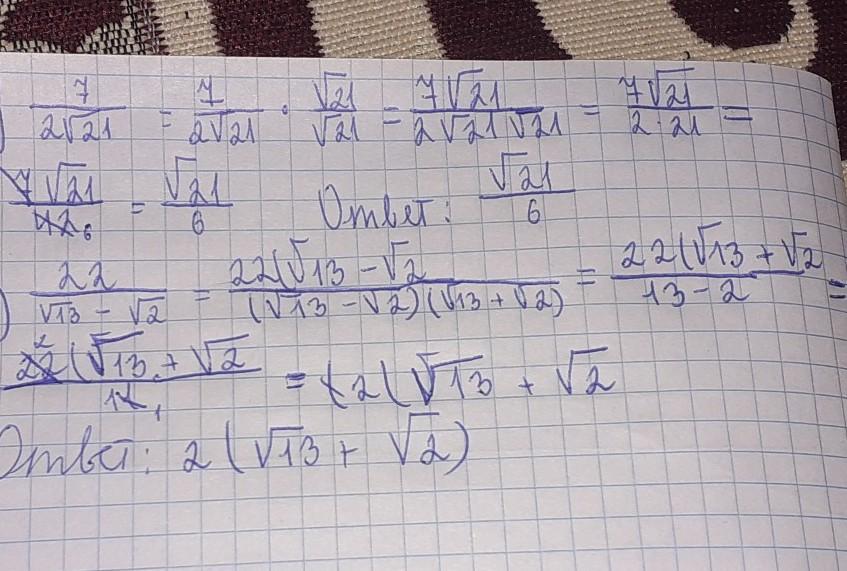 ) 7/(2√21) = 7/(2√21) · √21/√21 = 7√21/(2√21√21) = 7√21/(2·21) =
7√21/42 6 = √21/6 Ответ: √21/6
) 22/(√13 - √2) = 22(√13 - √2/(√13 - √2)(√13 + √2) = 22(√13 + √2/13 - 2 =
22 2 (√13 + √2/11 1 = 2(√13 + √2
Ответ: 2(√13 + √2)